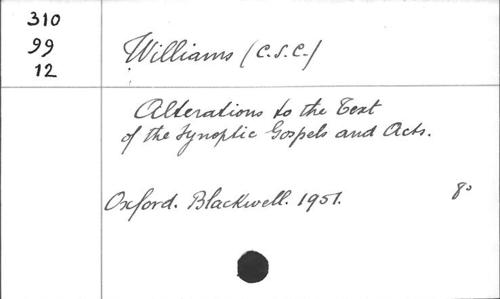 310
99
12
Williams (C.S.C.)
Alterations to the Text
of the Synoptic Gospels and Acts.
Oxford. Blackwell. 1951. 8º